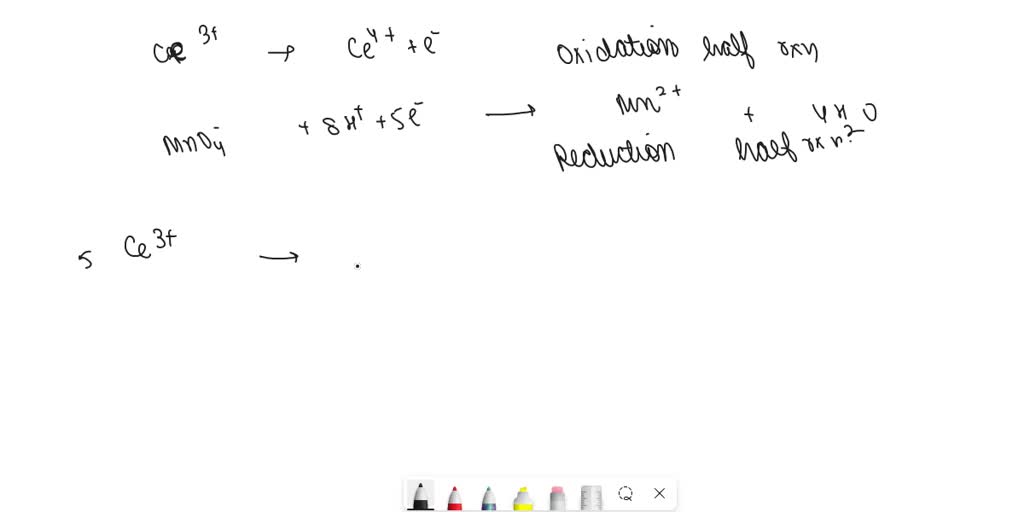 Ce 3+ → Ce4+ + e- Oxidation half rxn
MnO4- + 8H+ + 5e- → Mn2+ + 4H2O
Reduction half rxn
5 Ce3+ → .